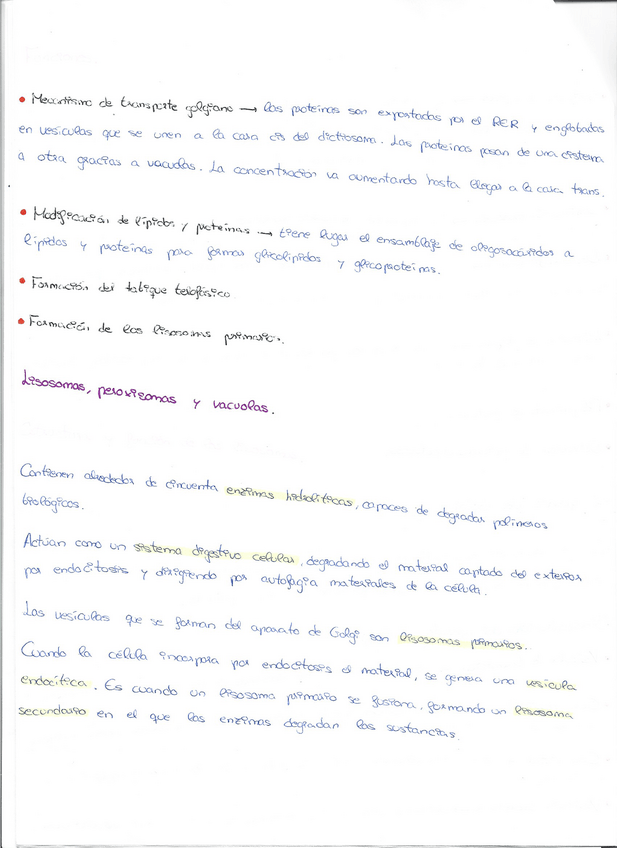 • Mecanismo de transporte golgiano → las proteínas son exportadas por el RER y englobadas
en vesículas que se unen a la cara cis del dictiosoma. Las proteínas pasan de una cisterna
a otra gracias a vacuolas. La concentración va aumentando hasta llegar a la cara trans.
• Modificación de lípidos y proteínas → tiene lugar el ensamblaje de oligosacáridos a
lípidos y proteínas para formar glicolípidos y glicoproteínas.
• Formación del tabique telofásico
• Formación de los lisosomas primarios.
Lisosomas, peroxisomas y vacuolas.
Contienen alrededor de cincuenta enzimas hidrolíticas, capaces de degradar polímeros
biológicos.
Actúan como un sistema digestivo celular, degradando el material captado del exterior
por endocitosis y dirigiendo por autofagia materiales de la célula.
Las vesículas que se forman del aparato de Golgi son lisosomas primarios.
Cuando la célula incorpora por endocitosis el material, se genera una vesícula
endocítica. Es cuando un lisosoma primario se fusiona, formando un lisosoma
secundario en el que las enzimas degradan las sustancias.